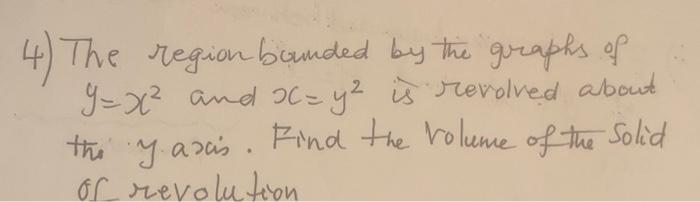 4) The region bounded by the graphs of
y=x² and x=y² is revolved about
the y axis. Find the volume of the solid
of revolution